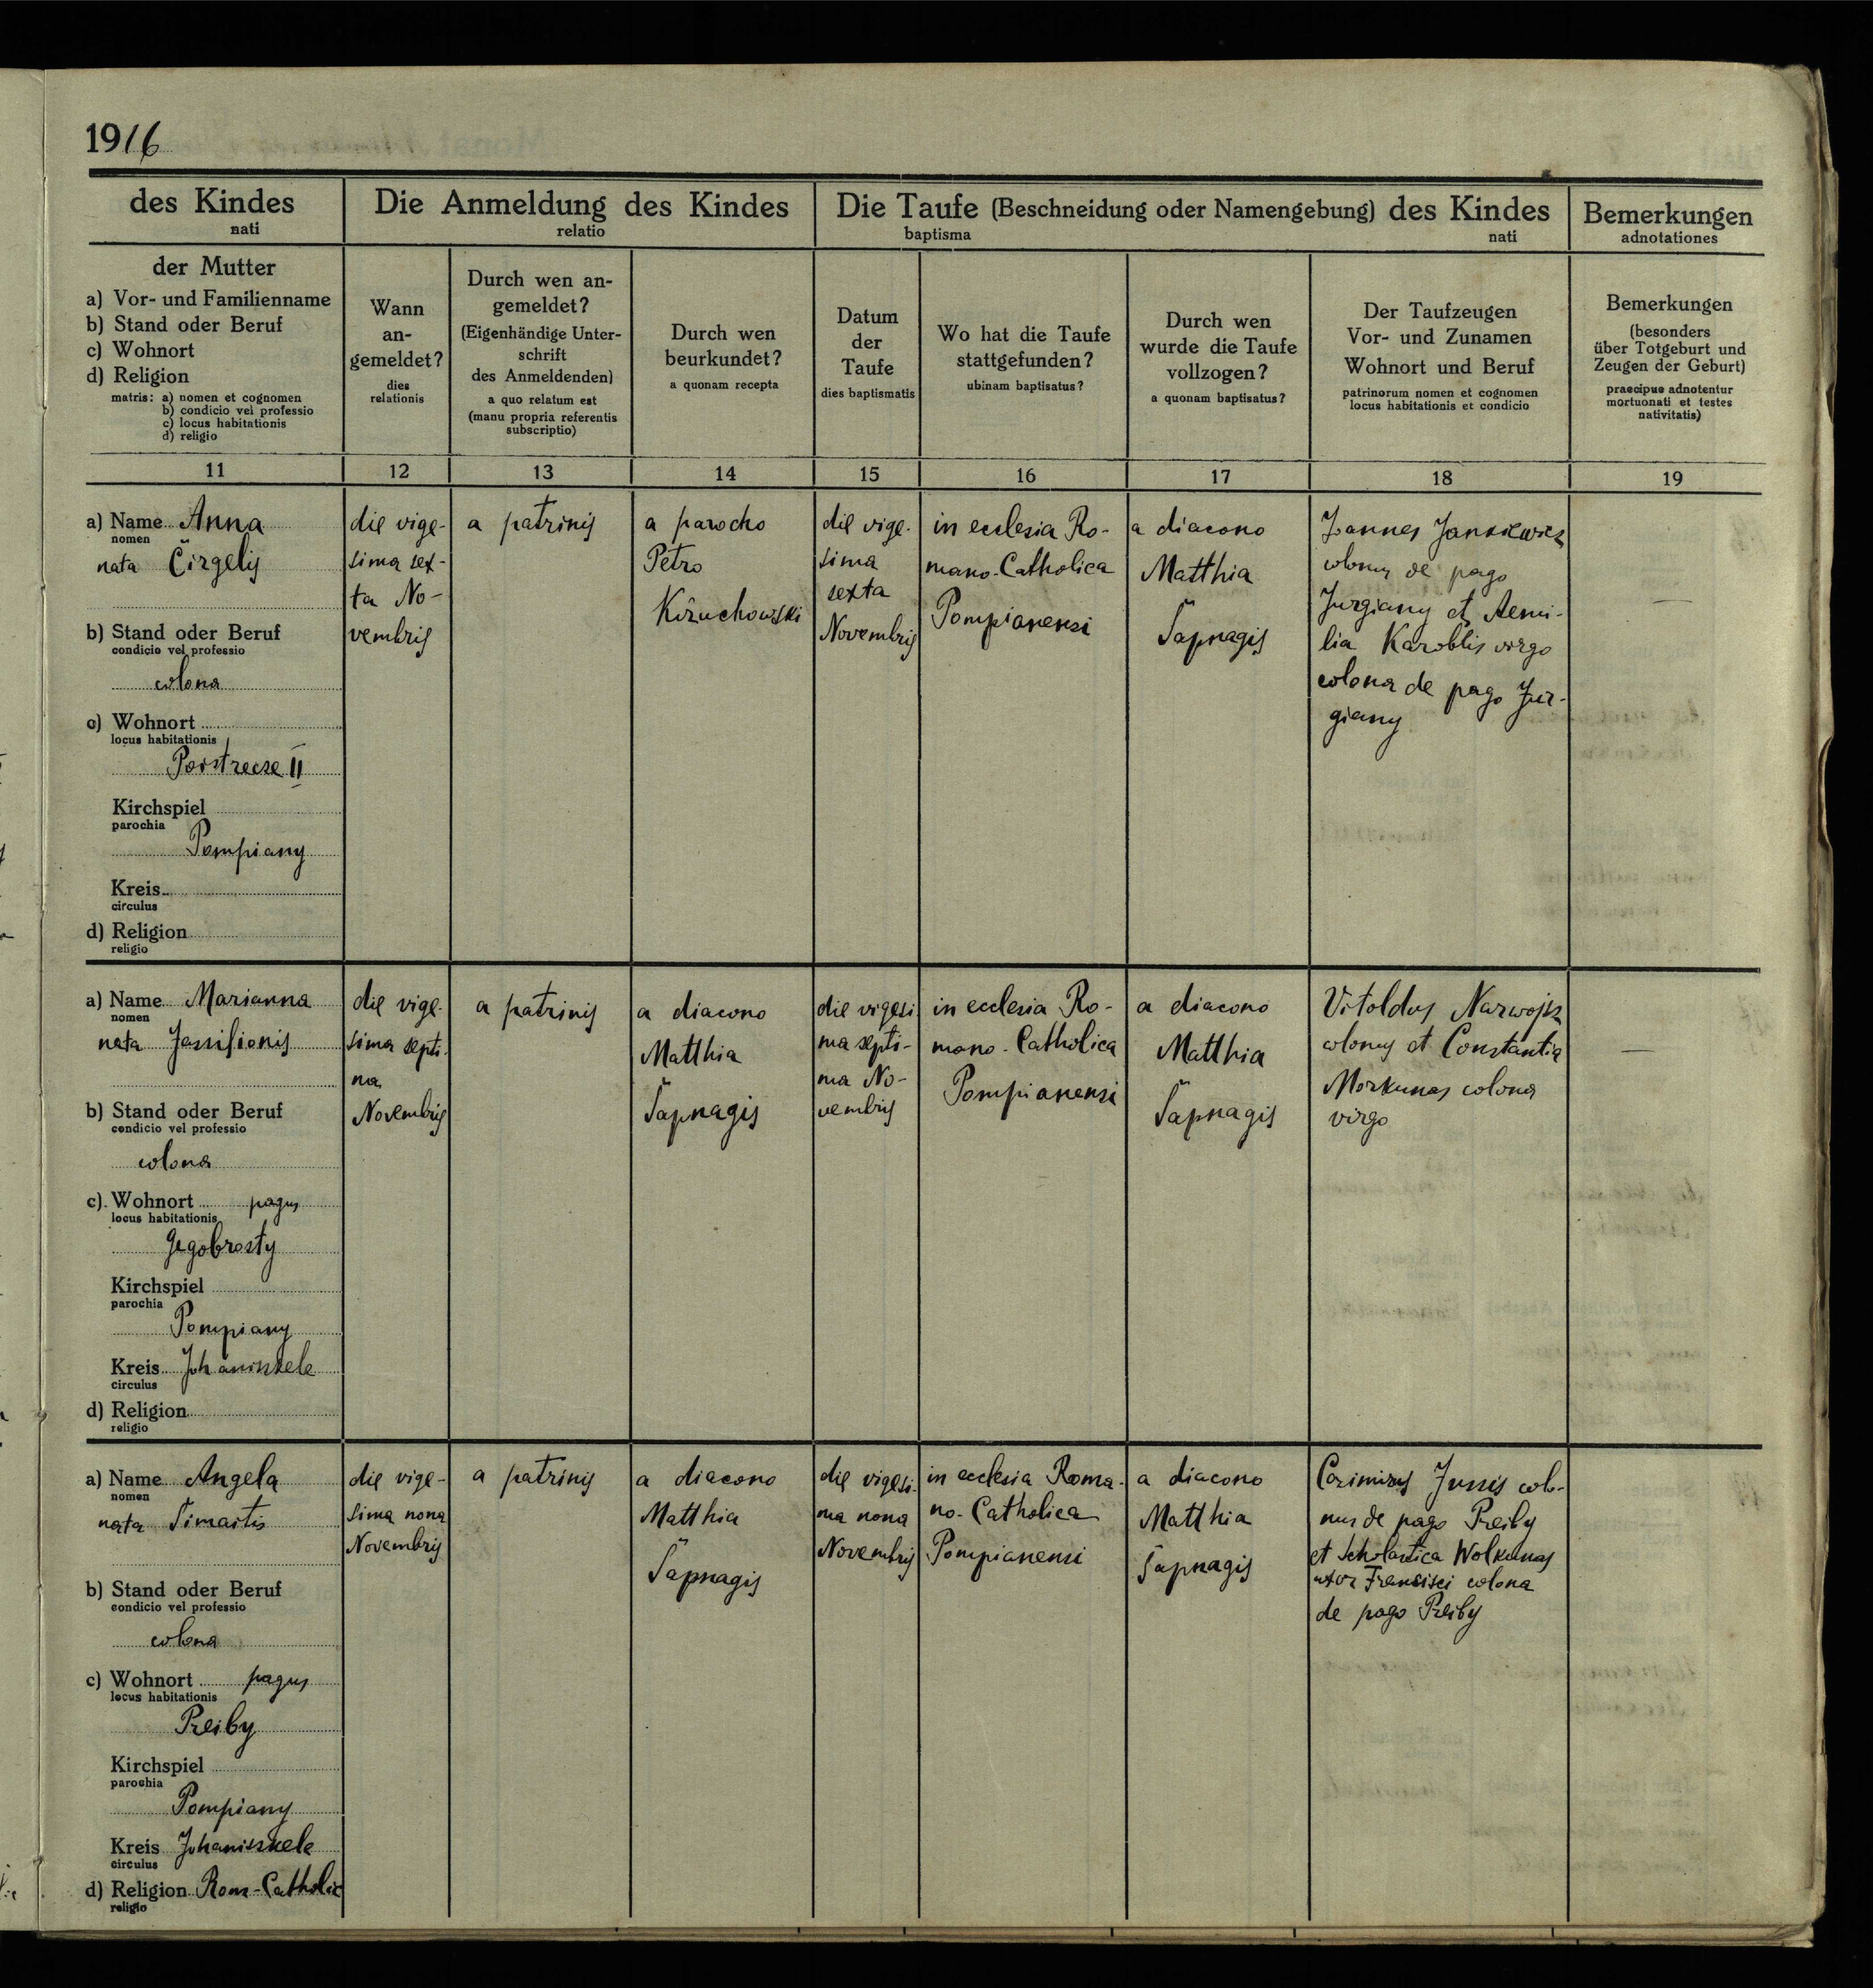 1916
des Kindes
nati
Die Anmeldung des Kindes
relatio
Die Taufe (Beschneidung oder Namengebung) des Kindes
baptisma nati
Bemerkungen
adnotationes
der Mutter
a) Vor- und Familienname
b) Stand oder Beruf
c) Wohnort
d) Religion
matris: a) nomen et cognomen
b) condicio vel professio
c) locus habitationis
d) religio
Wann
an-
gemeldet?
dies
relationis
Durch wen an-
gemeldet?
(Eigenhändige Unter-
schrift
des Anmeldenden)
a quo relatum est
(manu propria referentis
subscriptio)
Durch wen
beurkundet?
a quonam recepta
Datum
der
Taufe
dies baptismatis
Wo hat die Taufe
stattgefunden?
ubinam baptisatus?
Durch wen
wurde die Taufe
vollzogen?
a quonam baptisatus?
Der Taufzeugen
Vor- und Zunamen
Wohnort und Beruf
patrinorum nomen et cognomen
locus habitationis et condicio
Bemerkungen
(besonders
über Totgeburt und
Zeugen der Geburt)
praecipue adnotentur
mortuonati et testes
nativitatis)
11 12 13 14 15 16 17 18 19
a) Name Anna
nomen
nata Čirgelis
b) Stand oder Beruf
condicio vel professio
colona
c) Wohnort
locus habitationis
Porstrecze II
Kirchspiel
parochia
Pompiany
Kreis
circulus
d) Religion
religio
die vige-
sima sex-
ta No-
vembris
a patrinis
a parocho
Petro
Kiruchowski
die vige-
sima
sexta
Novembris
in ecclesia Ro-
mano-Catholica
Pompianensi
a diacono
Matthia
Šapnagis
Joannes Jankiewicz
colonus de pago
Jurgiany et Aemi-
lia Karoblis virgo
colona de pago Jur-
giany
—
a) Name Marianna
nomen
nata Jassilionis
b) Stand oder Beruf
condicio vel professio
colona
c) Wohnort pagus
locus habitationis
Gegobrosty
Kirchspiel
parochia
Pompiany
Kreis Johaniszkele
circulus
d) Religion
religio
die vige-
sima septi-
ma
Novembris
a patrinis
a diacono
Matthia
Šapnagis
die vigesi
ma septi-
ma No-
vembris
in ecclesia Ro-
mano-Catholica
Pompianensi
a diacono
Matthia
Šapnagis
Vitoldus Narwojsz
colonus et Constantia
Morkunas colona
virgo
—
a) Name Angela
nomen
nata Šimaitis
b) Stand oder Beruf
condicio vel professio
colona
c) Wohnort pagus
locus habitationis
Preiby
Kirchspiel
parochia
Pompiany
Kreis Johaniszkele
circulus
d) Religion Rom-Catholic
religio
die vige-
sima nona
Novembris
a patrinis
a diacono
Matthia
Šapnagis
die vigesi-
ma nona
Novembris
in ecclesia Roma-
no-Catholica
Pompianensi
a diacono
Matthia
Šapnagis
Casimirus Jussis colo-
nus de pago Preiby
et Scholastica Wolkunas
uxor Francisci colona
de pago Preiby